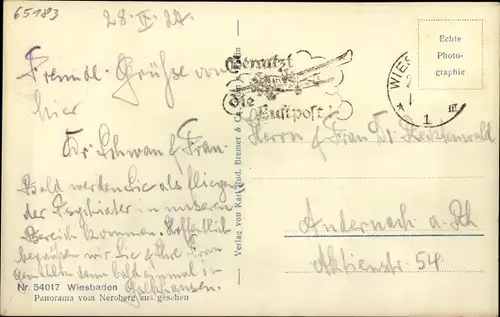 65183
28. IV. 27.
Freundl. Grüße von
hier
Dr. Schwan & Frau.
Bald werden Sie als fliegen
der Psychiater in unseren
Bereich kommen. Hoffentlich
begrüßen wir Sie & Ihre Frau
dann bald einmal in
Nr. 54017 Wiesbaden
Panorama vom Neroberg aus gesehen
Verlag von Karl Rud. Bremer & Co.
Benutzt
die
Luftpost!
WIES
1
III
Echte
Photo-
graphie
Herrn & Frau Dr.
Andernach a. Rh
Aktienstr. 54